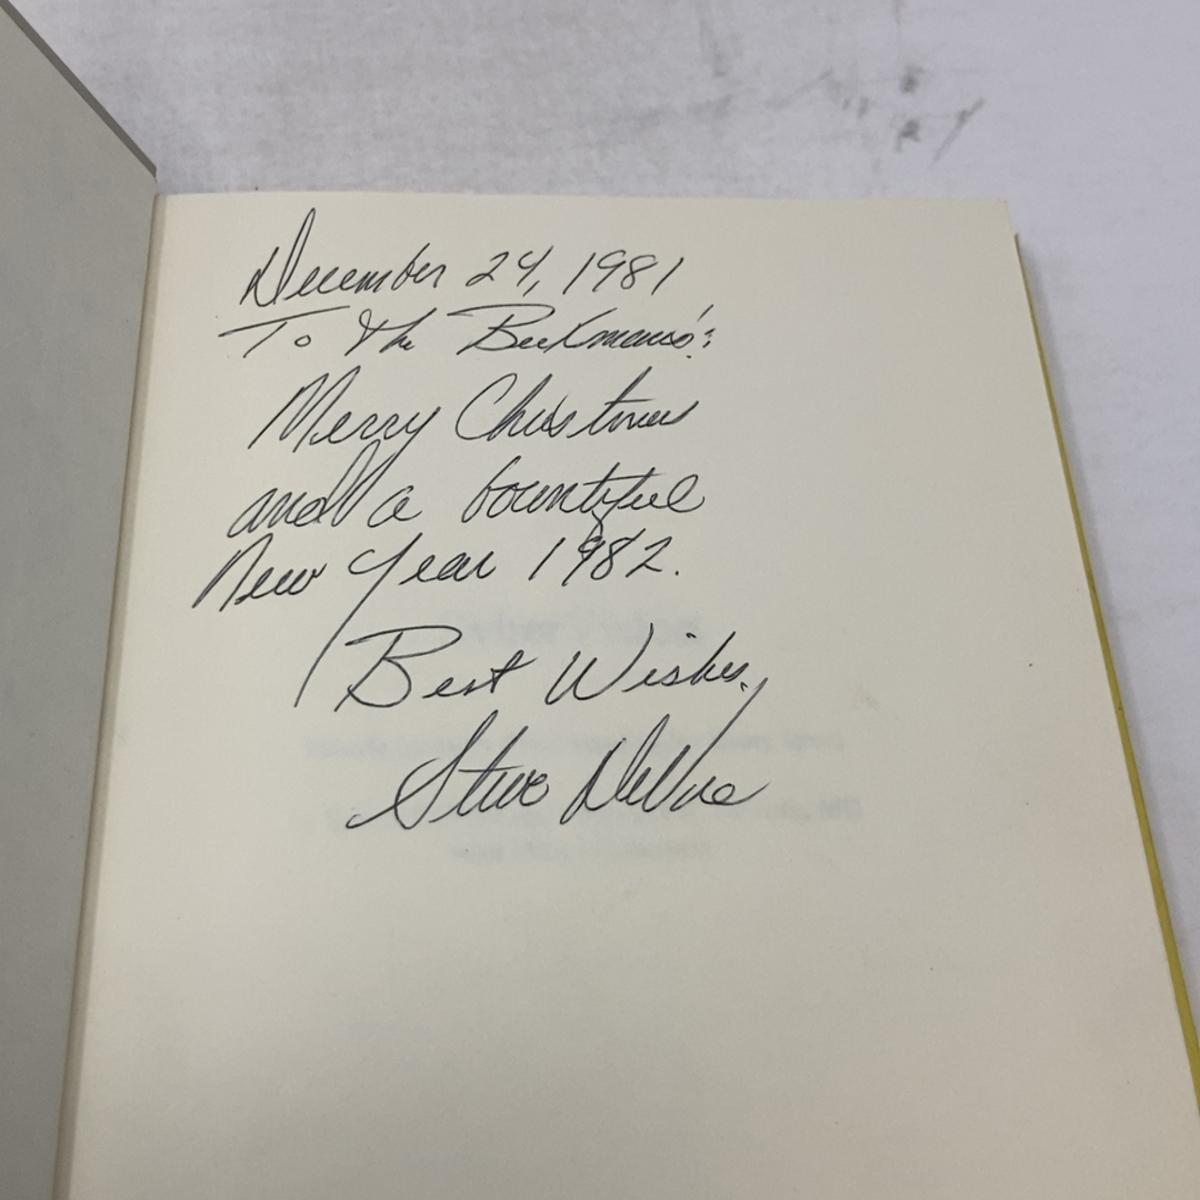 December 24, 1981
To the Beekmans':
Merry Christmas
and a bountiful
New Year 1982.
Best Wishes,
Steve DeVore